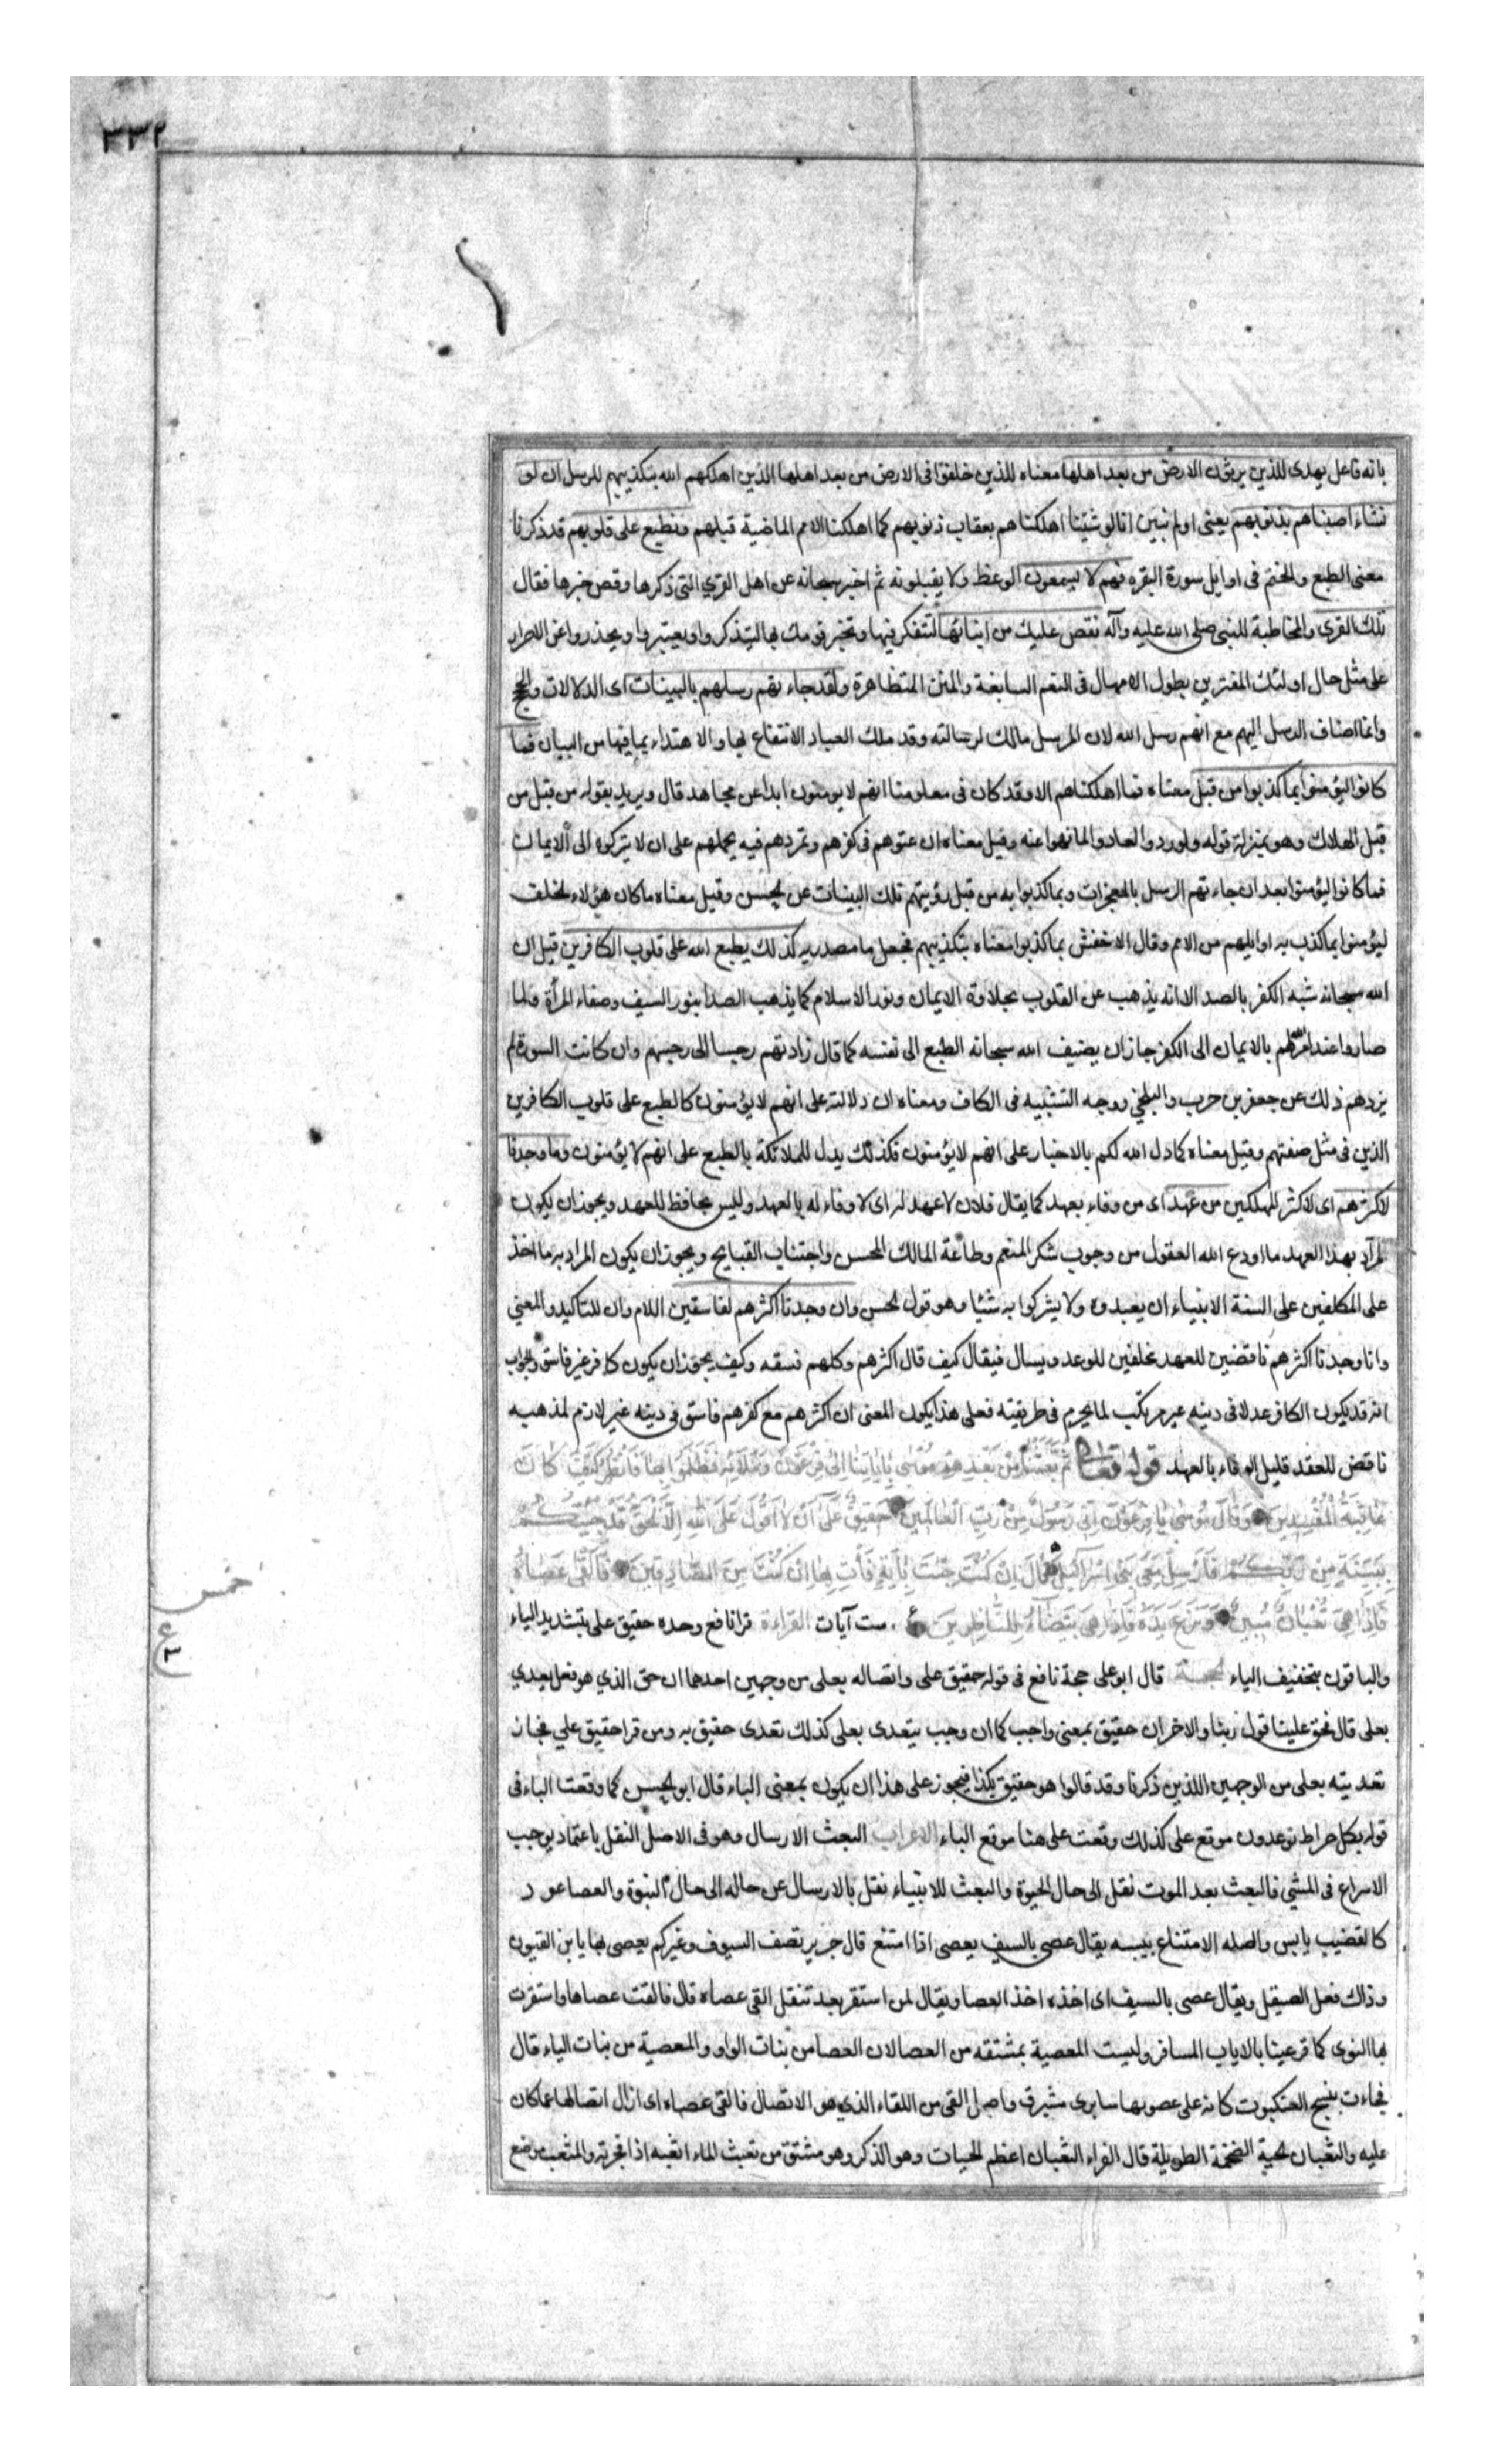 ٣٣٢
بانه فاعل يهدى للذين يرثون الارض من بعد اهلها معناه للذين خلفوا فى الارض من بعد اهلها الذين اهلكهم الله بتكذيبهم للرسل ان لو
نشاء اصبناهم بذنوبهم يعنى اولم نبين انا لو شئنا اهلكناهم بعقاب ذنوبهم كما اهلكنا الامم الماضية قبلهم ونطبع على قلوبهم قد ذكرنا
معنى الطبع والختم فى اوايل سورة البقره فهم لا يسمعون الوعظ ولا يقبلونه ثم اخبر سبحانه عن اهل القرى التى ذكرها وقص خبرها فقال
تلك القرى والمخاطبة للنبى صلى الله عليه وآله نقص عليك من انبائها لتتفكر فيها وتخبر قومك بها ليتذكروا ويعتبروا ويحذروا عن الاصرار
على مثل حال اولئك المغترين بطول الامهال فى النعم السابغة والمنن المتظاهرة ولقد جاءتهم رسلهم بالبينات اى الدلالات والحجج
وانما اضاف الرسل اليهم مع انهم رسل الله لان المرسل مالك لرسالته وقد ملك العباد الانتفاع بها والاهتداء بما فيها من البيان فما
كانوا ليؤمنوا بما كذبوا من قبل معناه فما اهلكناهم الا وقد كان فى معلومنا انهم لا يومنون ابدا عن مجاهد قال ويريد بقوله من قبل من
قبل الهلاك وهو بمنزلة قوله ولو ردوا لعادوا لما نهوا عنه وقيل معناه ان عتوهم فى كفرهم وتمردهم فيه يحملهم على ان لا يتركوه الى الايمان
فما كانوا ليؤمنوا بعد ان جاءتهم الرسل بالمعجزات وبما كذبوا به من قبل رؤيتهم تلك البينات عن الحسن وقيل معناه ما كان هؤلاء الخلف
ليؤمنوا بما كذب به اوايلهم من الامم وقال الاخفش بما كذبوا معناه بتكذيبهم فجعل ما مصدريه كذلك يطبع الله على قلوب الكافرين قيل ان
الله سبحانه شبه الكفر بالصدا لانه يذهب عن القلوب بحلاوة الايمان ونور الاسلام كما يذهب الصدا بنور السيف وصفاء المرآة ولما
صاروا عند امرهم بالايمان الى الكفر جاز ان يضيف الله سبحانه الطبع الى نفسه كما قال زادتهم رجسا الى رجسهم وان كانت السورة لم
يزدهم ذلك عن جعفر بن حرب والبلخي ووجه التشبيه فى الكاف ومعناه ان دلالته على انهم لا يؤمنون كالطبع على قلوب الكافرين
الذين فى مثل صفتهم وقيل معناه كما دل الله لكم بالاخبار على انهم لا يؤمنون فكذلك يدل للملائكة بالطبع على انهم لا يؤمنون وما وجدنا
لاكثرهم اى لاكثر المهلكين من عهد اى من وفاء بعهد كما يقال فلان لا عهد له اى لا وفاء له بالعهد وليس بحافظ للعهد ويجوز ان يكون
المراد بهذا العهد ما اودع الله العقول من وجوب شكر المنعم وطاعة المالك المحسن واجتناب القبايح ويجوز ان يكون المراد به ما اخذ
على المكلفين على السنة الانبياء ان يعبدوه ولا يشركوا به شيئا وهو قول الحسن وان وجدنا اكثرهم لفاسقين اللام وان للتاكيد والمعنى
وانا وجدنا اكثرهم ناقضين للعهد مخلفين للوعد ويسال فيقال كيف قال اكثرهم وكلهم فسقه وكيف يجوز ان يكون كافر غير فاسق والجواب
انه قد يكون الكافر عدلا فى دينه غير مرتكب لما يحرم فى طريقته فعلى هذا يكون المعنى ان اكثرهم مع كفرهم فاسق فى دينه غير لازم لمذهبه
ناقض للعقد قليل الوفاء بالعهد قوله تعالى ثُمَّ بَعَثْنَا مِنْ بَعْدِهِمْ مُوسٰى بِاٰيَاتِنَا اِلٰى فِرْعَوْنَ وَمَلَائِهِ فَظَلَمُوا بِهَا فَانْظُرْ كَيْفَ كَانَ
عَاقِبَةُ الْمُفْسِدِينَ وَقَالَ مُوسٰى يَا فِرْعَوْنُ اِنِّى رَسُولٌ مِنْ رَبِّ الْعَالَمِينَ حَقِيقٌ عَلٰى اَنْ لَا اَقُولَ عَلَى اللهِ اِلَّا الْحَقَّ قَدْ جِئْتُكُمْ
بِبَيِّنَةٍ مِنْ رَبِّكُمْ فَاَرْسِلْ مَعِىَ بَنِى اِسْرَائِيلَ قَالَ اِنْ كُنْتَ جِئْتَ بِاٰيَةٍ فَأْتِ بِهَا اِنْ كُنْتَ مِنَ الصَّادِقِينَ فَاَلْقٰى عَصَاهُ
فَاِذَا هِىَ ثُعْبَانٌ مُبِينٌ وَنَزَعَ يَدَهُ فَاِذَا هِىَ بَيْضَاءُ لِلنَّاظِرِينَ ست آيات القراءة قرا نافع وحده حقيق على بتشديد الياء
خمس
ع
٣
والباقون بتخفيف الياء الحجة قال ابو على حجة نافع فى قوله حقيق على واتصاله بعلى من وجهين احدهما ان حق الذي هو فعل يعدي
بعلى قال فحق علينا قول ربنا والاخر ان حقيق بمعنى واجب كما ان وجب يتعدى بعلى كذلك تعدى حقيق به ومن قرا حقيق علي فجاز
تعديته بعلى من الوجهين اللذين ذكرنا وقد قالوا هو حقيق بكذا فيجوز على هذا ان يكون بمعنى الباء قال ابو الحسن كما وقعت الباء فى
قوله بكل صراط توعدون موقع على كذلك وقعت على هنا موقع الباء الاعراب البعث الارسال وهو فى الاصل النقل باعتماد يوجب
الاسراع فى المشى فالبعث بعد الموت نقل الى حال الحيوة والبعث للانبياء نقل بالارسال عن حاله الى حال النبوة والعصا عود
كالقضيب يابس واصله الامتناع بيبسه يقال عصى بالسيف يعصى اذا امتنع قال جرير تصف السيوف وغيركم يعصى بها يا بن القيون
وذاك فعل الصيقل ويقال عصى بالسيف اى اخذه اخذ العصا ويقال لمن استقر بعد تنقل القى عصاه قال فالقت عصاها واستقرت
بها النوى كما قر عينا بالاياب المسافر وليست المعصية بمشتقه من العصا لان العصا من بنات الواو والمعصية من بنات الياء قال
فجاءت بنسج العنكبوت كانه على عصويها سابرى مشبرق واصل القى من اللقاء الذي هو الاتصال فالقى عصاه اى ازال اتصالها عما كان
عليه والثعبان الحية الضخمة الطويلة قال الفراء الثعبان اعظم الحيات وهو الذكر وهو مشتق من ثعبت الماء اثعبه اذا فجرته والمثعب موضع